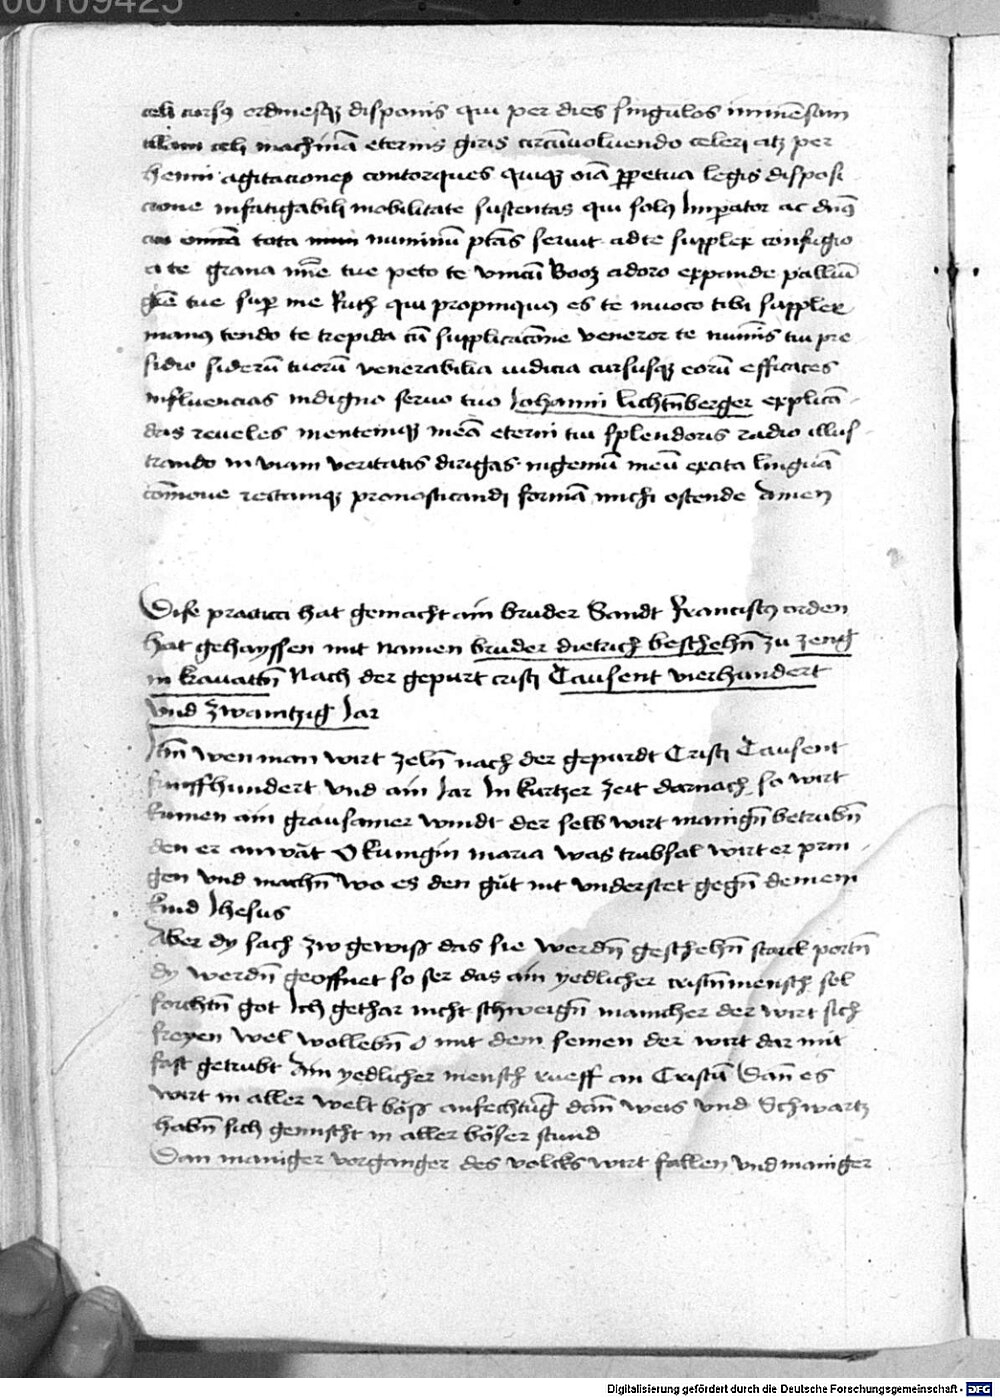 00109425
celi cursꝰ ordinesqꝫ disponis qui per dies singulos inmēsam
celi machinā eternis giris circūuoluendo celeri atqꝫ per
henni agitacione contorques quiqꝫ oīa ꝑpetua legis disposi
cione infatigabili mobilitate sustentas qui solꝰ Imperator ac dnꝰ
tota numinū ptās seruit ad te supplex confugio
a te peto te vnicū Booz adoro expande palliū
tue sup me Ruth qui propinquꝰ es te inuoco tibi supplex
manꝰ tendo te trepida cū supplicacōne veneror te numīs tui pre
sidio siderū tuorū venerabilia iudicia cursusqꝫ eorū efficaces
influencias indigno seruo tuo Johanni lichtnberger explicā
das reueles mentemqꝫ meā eterni tui splendoris radio illus
trando in viam veritatis dirigas ingeniū meū excita linguā
cōmoue rectamqꝫ pronosticandi formā michi ostende Amen
Dise practica hat gemacht ain bruder Sandt Franciscꝰ orden
hat gehayssen mit namen bruder dietrich zu zeng
in krauattn Nach der gepurt cristi Tausent vierhundert
vnd zwaintzig Jar
wen man wirt zeln nach der gepurdt Cristi Tausent
funffhundert vnd ain Jar In kurtzer zeit darnach so wirt
kumen ain grausamer windt der selb wirt manign betrubn
den er anwāt O kunigin maria was trubsal wirt er prin
gen vnd machn wo es den gůt nit vnderstet gegn deinem
kind Jhesus
Aber dy sach zw gewiß das sie werdn geschehn starck portn
dy werdn geoffnet so ser das ain yedlicher cristn mensch sol
forchtn got Ich gethar nicht schweign mancher der wirt sich
freyen wel wollebn o mit dem seinen der wirt dar mit
fast getrubt Ain yedlicher mensch rueff an Cristū Dan es
wirt in aller welt böß anfechtūg dan weis vnd Schwartz
habn sich gemischt in aller böser stund
Dan maniger vorganger des volcks wirt fallen vnd maniger
Digitalisierung gefördert durch die Deutsche Forschungsgemeinschaft - DFG